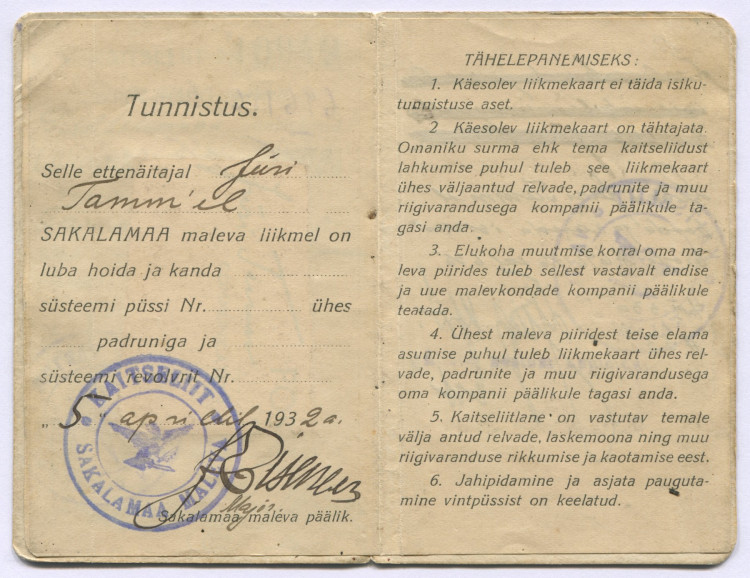 Tunnistus.
Selle ettenäitajal Jüri
Tamm'el
SAKALAMAA maleva liikmel on
luba hoida ja kanda
süsteemi püssi Nr. ühes
padruniga ja
süsteemi revolvrit Nr.
„5" aprillil 1932 a.
Major
Sakalamaa maleva päälik.
KAITSELIIT
SAKALAMAA MALEV
TÄHELEPANEMISEKS:
1. Käesolev liikmekaart ei täida isiku-
tunnistuse aset.
2 Käesolev liikmekaart on tähtajata.
Omaniku surma ehk tema kaitseliidust
lahkumise puhul tuleb see liikmekaart
ühes väljaantud relvade, padrunite ja muu
riigivarandusega kompanii päälikule ta-
gasi anda.
3. Elukoha muutmise korral oma ma-
leva piirides tuleb sellest vastavalt endise
ja uue malevkondade kompanii päälikule
teatada.
4. Ühest maleva piiridest teise elama
asumise puhul tuleb liikmekaart ühes rel-
vade, padrunite ja muu riigivarandusega
oma kompanii päälikule tagasi anda.
5. Kaitseliitlane on vastutav temale
välja antud relvade, laskemoona ning muu
riigivaranduse rikkumise ja kaotamise eest.
6. Jahipidamine ja asjata pauguta-
mine vintpüssist on keelatud.